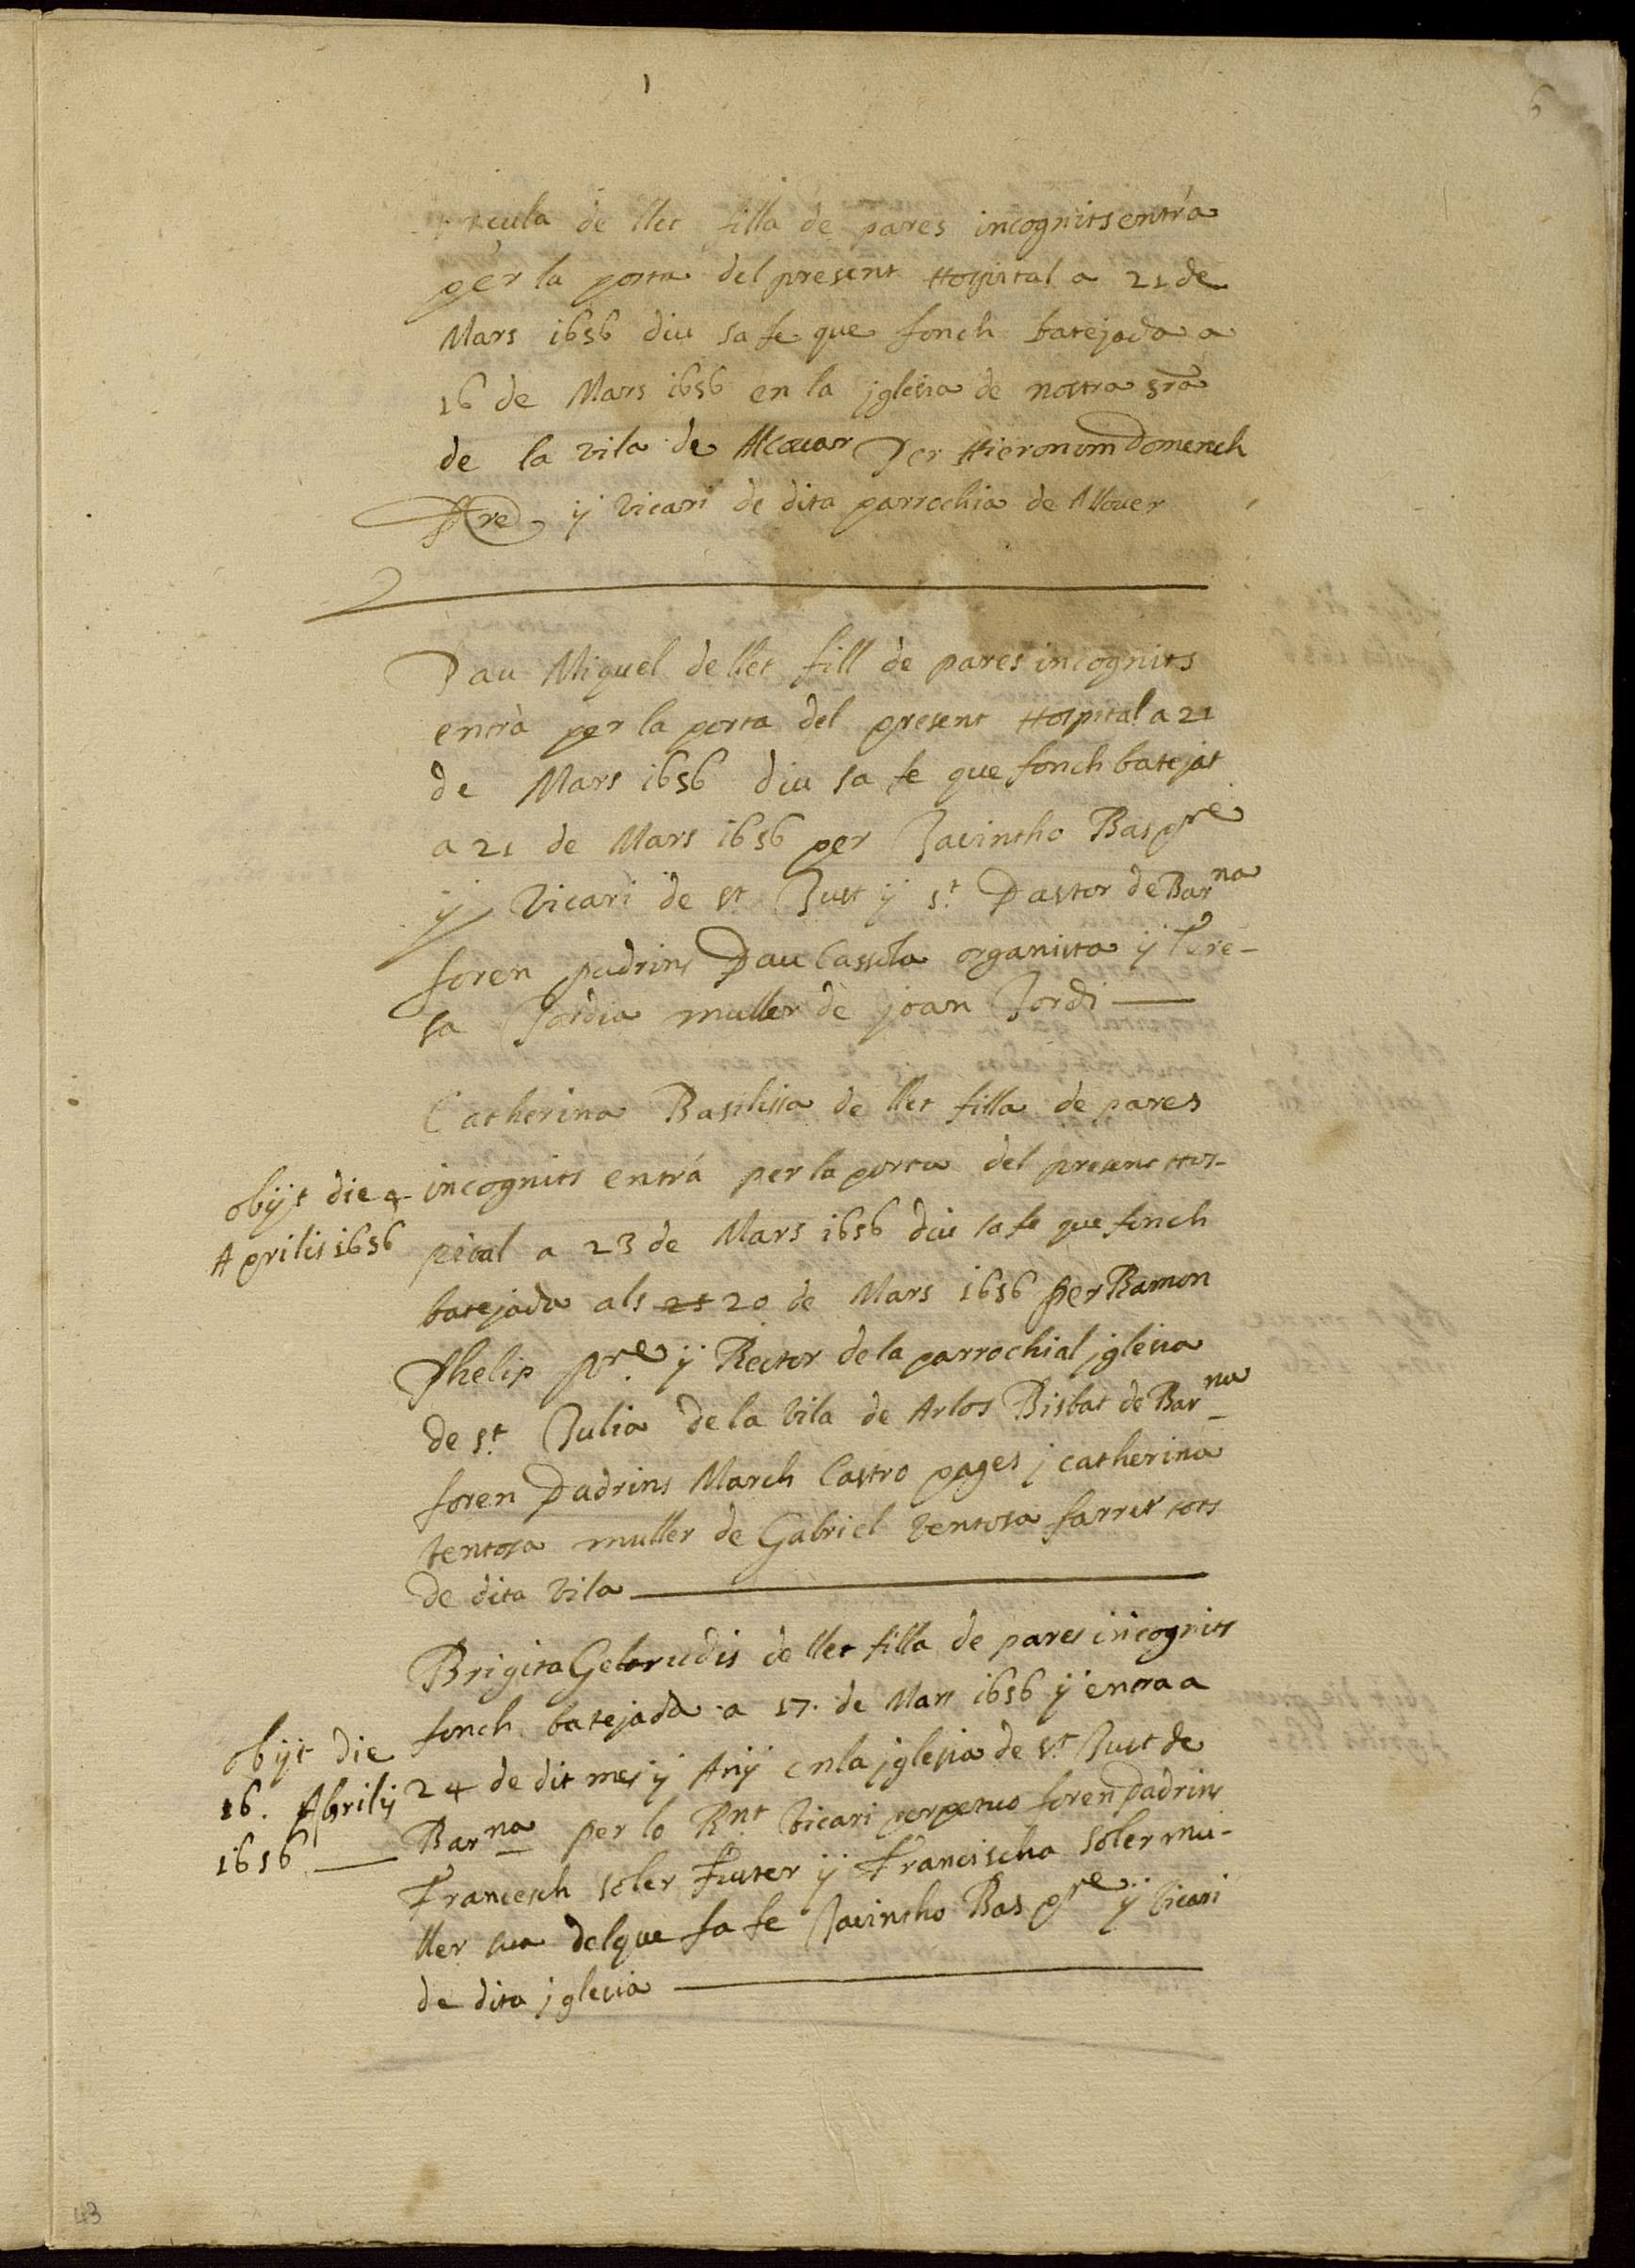 6
de llet filla de pares incognits entrà
per la porta del present Hospital a 21 de
Mars 1656 diu sa fe que fonch batejada a
16 de Mars 1656 en la jglesia de nostra sra
de la vila de Alcouer Per Hieronim Domench
Pre y vicari de dita parrochia de Alcouer
Pau Miquel de llet fill de pares incognits
entrà per la porta del present Hospital a 21
de Mars 1656 diu sa fe que fonch batejat
a 21 de Mars 1656 per Jacintho Bas pre
y vicari de st Just y st Pastor de Barna
foren padrins Pau Cassila organista y Tere-
sa Jordia muller de joan Jordi
Catherina Basilissa de llet filla de pares
obijt die 4 Aprilis 1656
incognits entrá per la porta del present Hos-
pital a 23 de Mars 1656 diu sa fe que fonch
batejada als 21 20 de Mars 1656 per Ramon
Phelip pre y Rector de la parrochial jglesia
de st Julia de la vila de Arbos Bisbat de Barna
foren Padrins March Castro pages j catherina
ventosa muller de Gabriel ventosa farrer tots
de dita vila
Brigita Getrudis de llet filla de pares incognits
obijt die 16. Abrilij 1656
fonch batejada a 17. de Mars 1656 y entra a
24 de dit mes y Any en la jglesia de st Just de
Barna per lo Rnt vicari perpetuo foren Padrins
Francesch soler fuster y Francischa soler mu-
ller sua del que fa fe Jacintho Bas pre y vicari
de dita jglesia
43